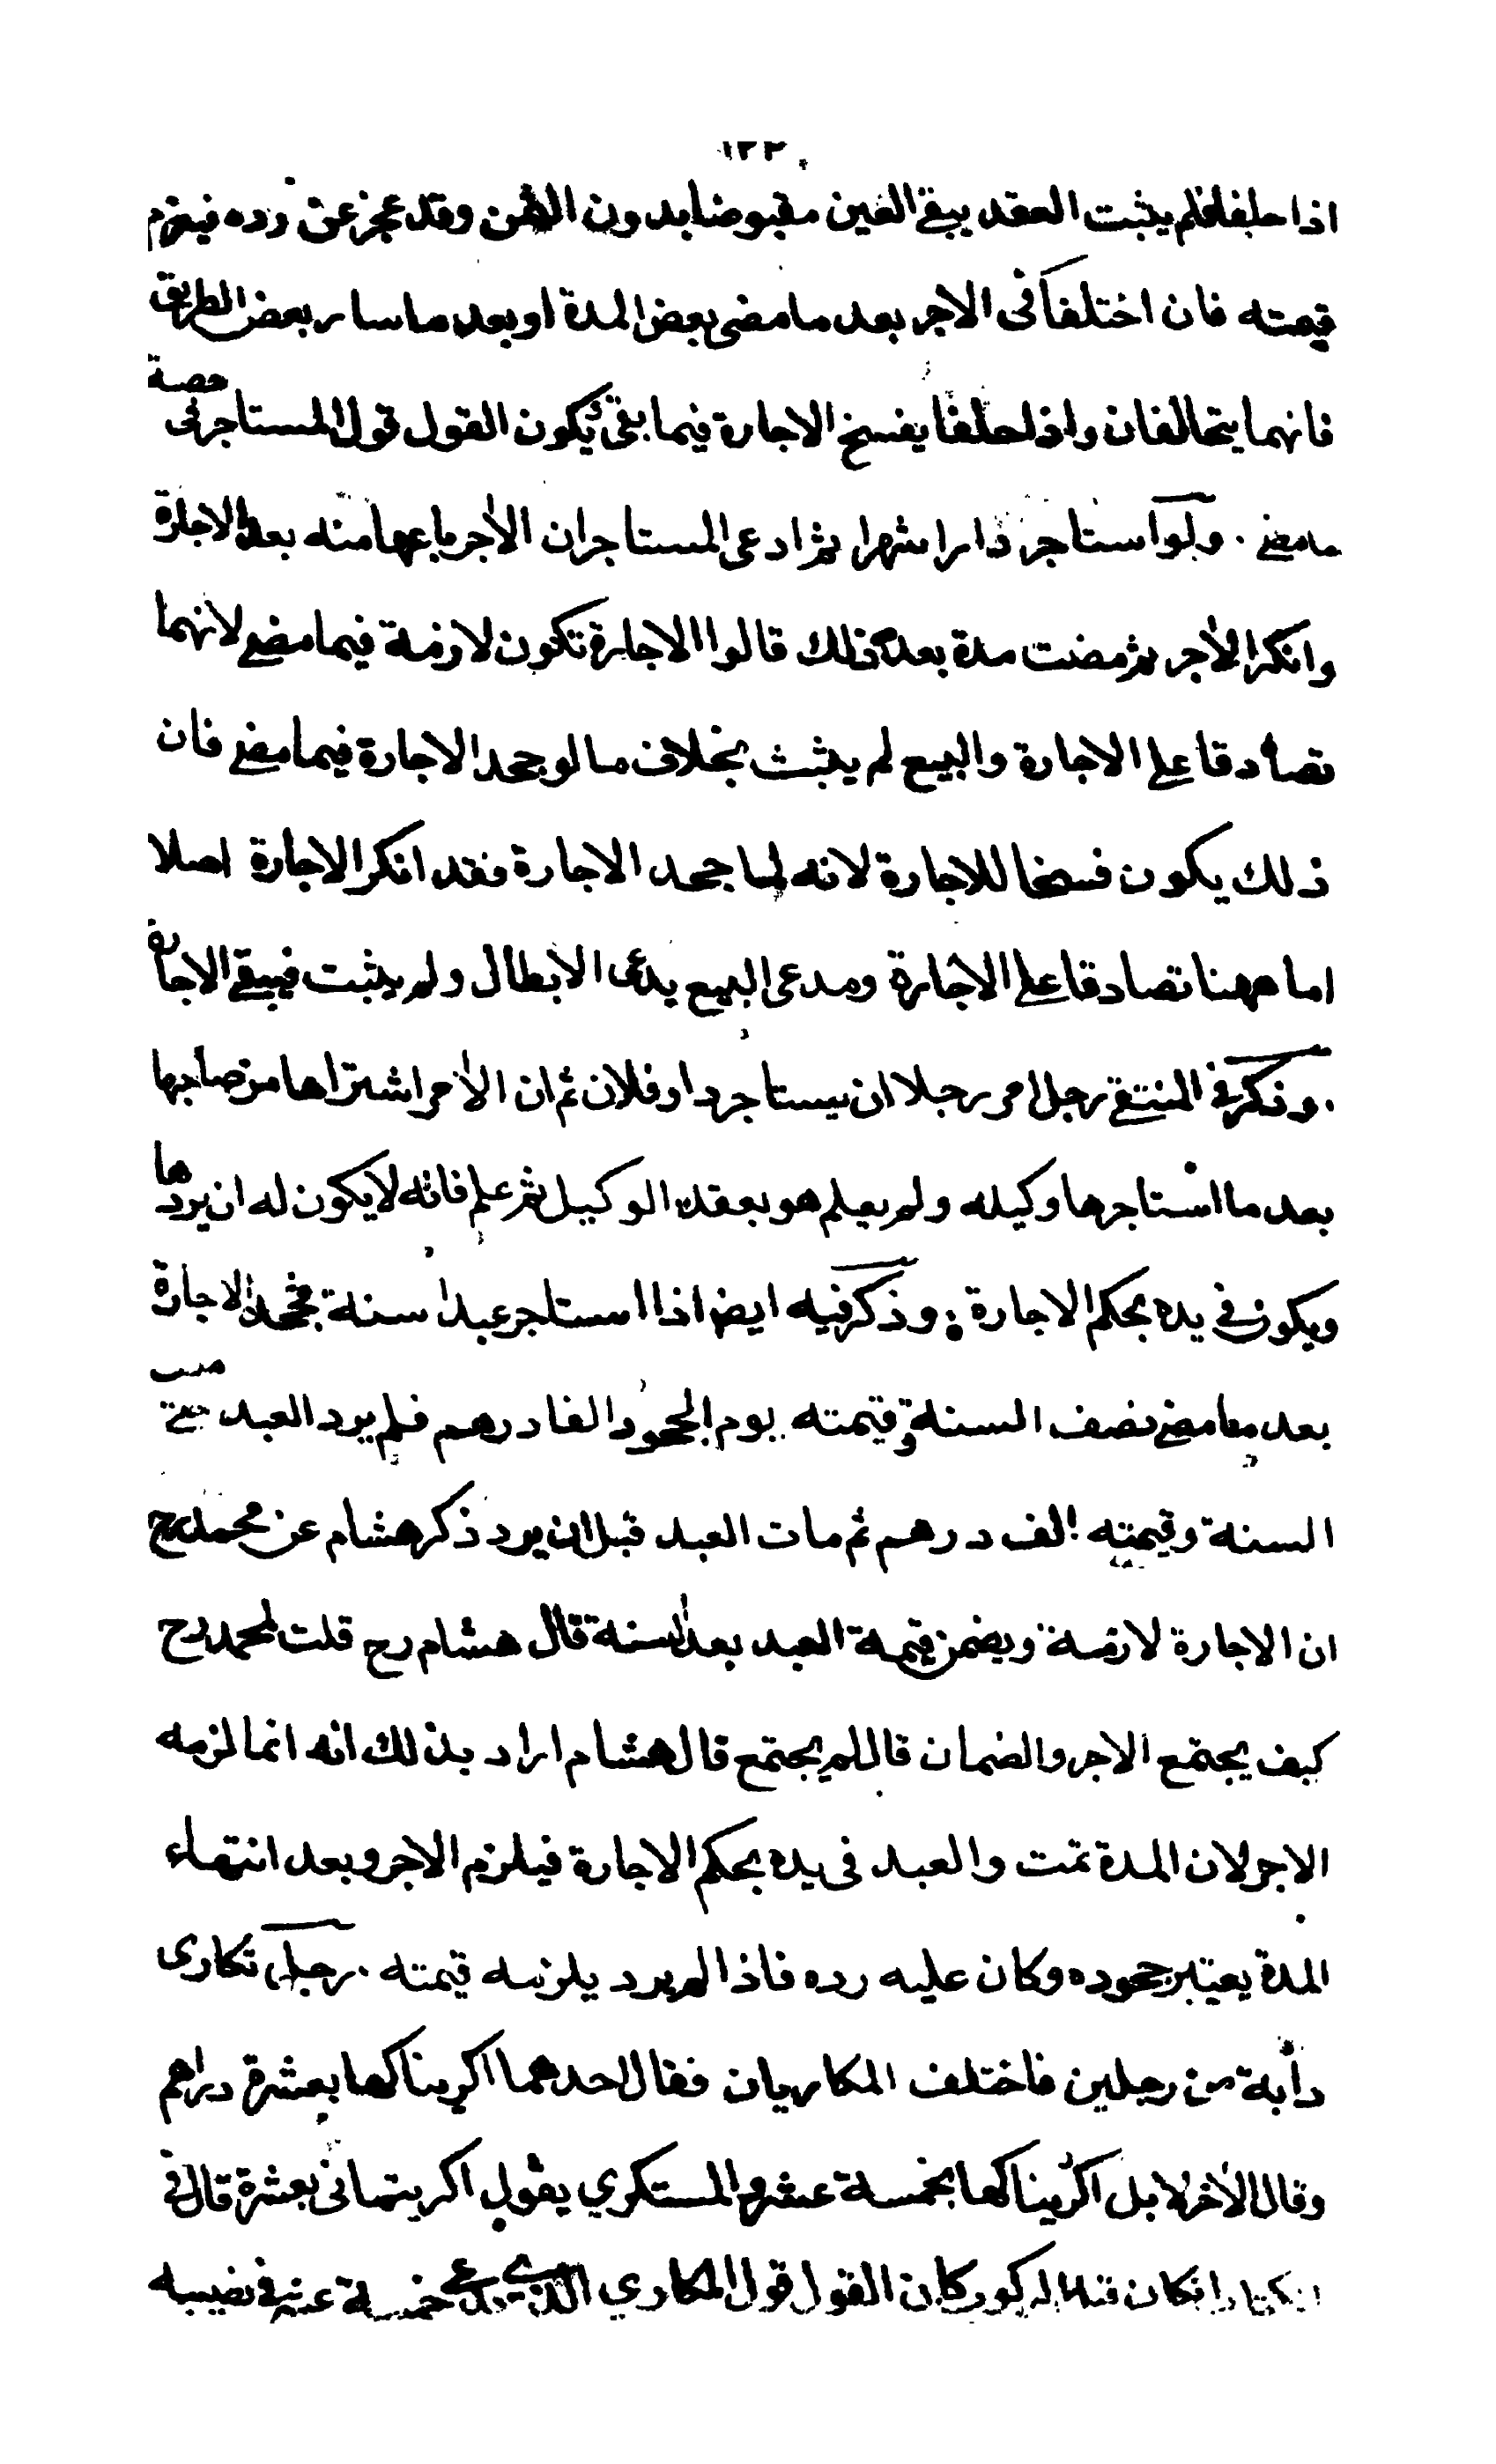 ١٣٣
اذا حلفا فلم يثبت العقد يبقى العين مقبوضا بدون الثمن وقد عجز عن رده فيغرم
قيمته فان اختلفا فى الاجر بعد ما مضى بعض المدة او بعد ما سار بعض الطريق
فانهما يتحالفان واذا حلفا يفسخ الاجارة فيما بقى ويكون القول قول المستاجر فى حصة
ما مضى . ولو استاجر دارا شهرا ثم ادعى المستاجر ان الآجر باعها منه بعد الاجارة
وانكر الآجر ثم مضت مدة بعد ذلك قالوا الاجارة تكون لازمة فيما مضى لانهما
تصادقا على الاجارة والبيع لم يثبت بخلاف ما لو جحد الاجارة فيما مضى فان
ذلك يكون فسخا للاجارة لانه لما جحد الاجارة فقد انكر الاجارة اصلا
اما ههنا تصادقا على الاجارة ومدعى البيع يدعى الابطال ولم يثبت فيبقى الاجارة
. وذكر فى المنتقى رجل امر رجلا ان يستاجر دار فلان ثم ان الآمر اشتراها من صاحبها
بعد ما استاجرها وكيله ولم يعلم هو بعقد الوكيل ثم علم فانه لا يكون له ان يردها
ويكون فى يده بحكم الاجارة . وذكر فيه ايضا اذا استاجر عبدا سنة فجحد الاجارة
بعد ما مضى نصف السنة وقيمته يوم الجحود الفا درهم فلم يرد العبد حتى مضت
السنة وقيمته الف درهم ثم مات العبد قبل ان يرد ذكر هشام عن محمد رح
ان الاجارة لازمة ويضمن قيمة العبد بعد السنة قال هشام رح قلت لمحمد رح
كيف يجتمع الاجر والضمان قال لم يجتمع قال هشام اراد بذلك انه انما لزمه
الاجر لان المدة تمت والعبد فى يده بحكم الاجارة فيلزم الاجر وبعد انتهاء
المدة يعتبر جحوده وكان عليه رده فاذا لم يرد يلزمه قيمته . رجل تكارى
دابة من رجلين فاختلف المكاريان فقال احدهما اكريناكها بعشرة دراهم
وقال الآخر لا بل اكريناكها بخمسة عشر والمستكري يقول اكريتمانى بعشرة قال فى
الكتاب ان كان قبل الركوب كان القول قول المكاري الذي يدعى خمسة عشر فى نصيبه